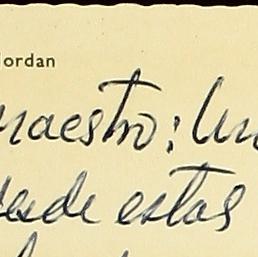 Jordan
maestro: Un
desde estas